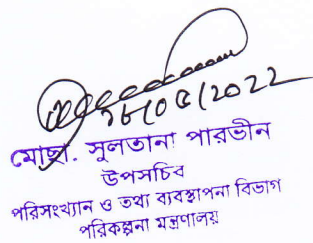 ১৮/০৫/2022
মোছা. সুলতানা পারভীন
উপসচিব
পরিসংখ্যান ও তথ্য ব্যবস্থাপনা বিভাগ
পরিকল্পনা মন্ত্রণালয়